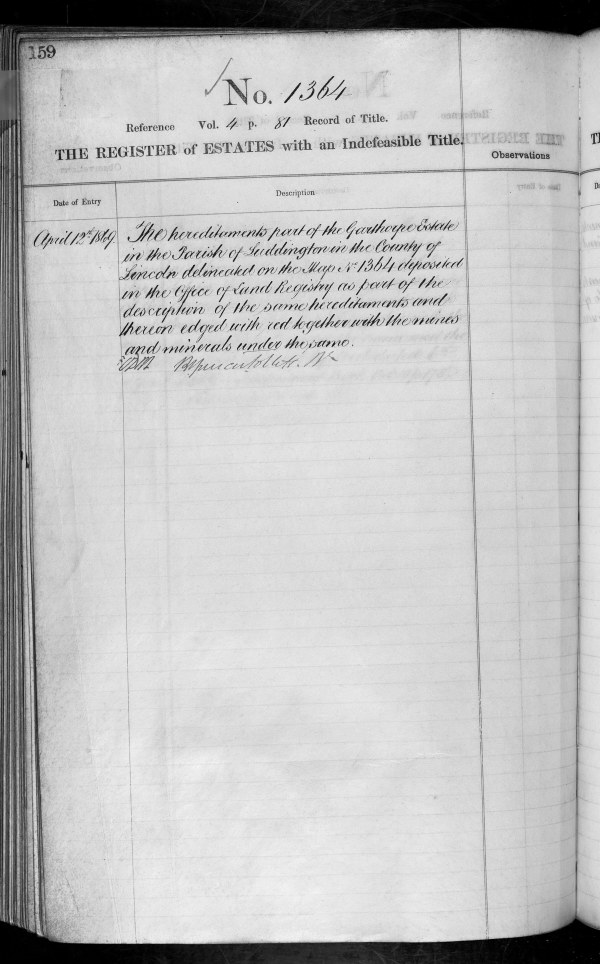 159
No. 1364
Reference Vol. 4 p. 81 Record of Title.
THE REGISTER of ESTATES with an Indefeasible Title.
Observations
Date of Entry
Description
April 12th 1869
The hereditaments part of the Garthorpe Estate
in the Parish of Luddington in the County of
Lincoln delineated on the Map No 1364 deposited
in the Office of Land Registry as part of the
description of the same hereditaments and
thereon edged with red together with the mines
and minerals under the same.